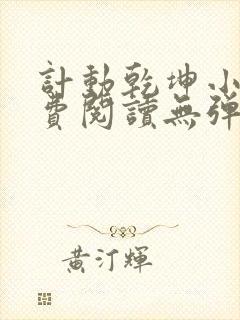 計動乾坤小
費閱讀無彈
黃汀輝